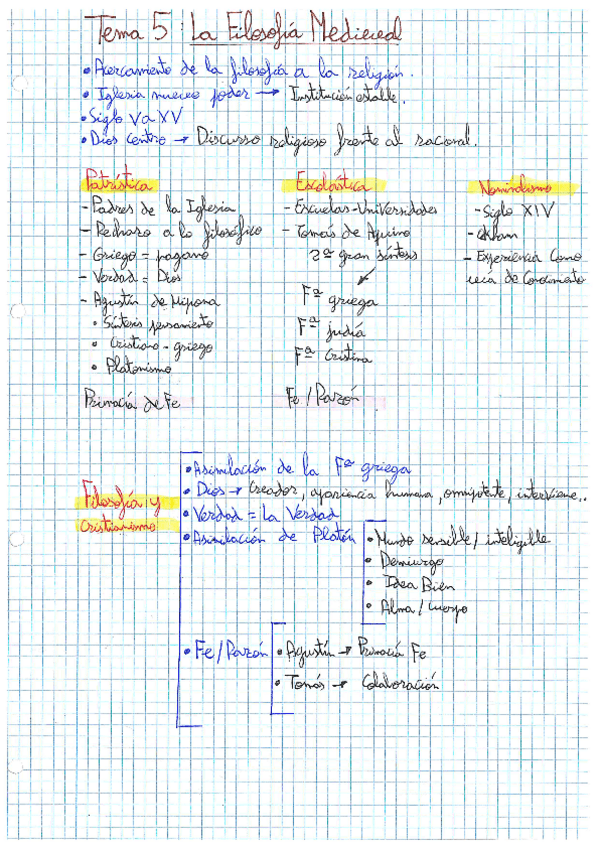 Tema 5: La Filosofía Medieval
• Acercamiento de la filosofía a la religión.
• Iglesia nuevo poder → Institución estable.
• Siglo V a XV
• Dios centro → Discurso religioso frente al racional.
Patrística
- Padres de la Iglesia
- Rechazo a lo filosófico
- Griego = pagano
- Verdad = Dios
- Agustín de Hipona
• Síntesis pensamiento
• Cristiano-griego
• Platonismo
Primacía de Fe
Escolástica
- Escuelas-Universidades
- Tomás de Aquino
2ª gran síntesis
Fª griega
Fª judía
Fª Cristina
Fe / Razón
Nominalismo
- Siglo XIV
- Okham
- Experiencia como
vía de Conocimiento
Filosofía y
Cristianismo
• Asimilación de la Fª griega
• Dios → Creador, apariencia humana, omnipotente, interviene..
• Verdad = La Verdad
• Asimilación de Platón
• Mundo sensible / inteligible
• Demiurgo
• Idea Bien
• Alma / Cuerpo
• Fe / Razón
• Agustín → Primacía Fe
• Tomás → Colaboración